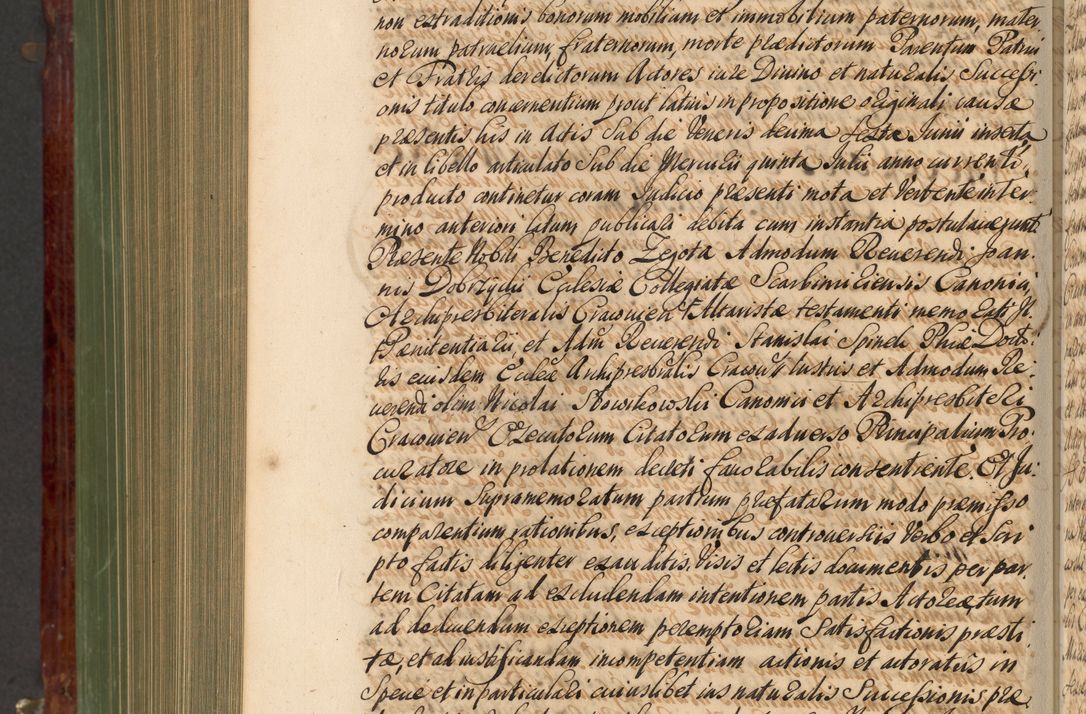 non extraditionis bonorum mobilium et immobilium paternorum, mater
norum patruelium, fraternorum, morte prædictorum Parentum Patrui
et Fratris derelictorum Actores iure Divino et naturalis Successi
onis titulo concernentium prout latius in propositione originali causæ
præsentis his in Actis Sub die Veneris decima Sexta Junii inserta
et in libello articulato Sub die Mercurii quinta Julii anno currenti,
producto continetur coram Judicio præsenti mota et Vertente in ter
mino anteriori latum publicari debita cum instantia postulaverunt
Præsente Nobili Benedicto Zegota Admodum Reverendi Joan
nis Dobrzycki Eclesiæ Collegiatæ Scarbimiriensis Canonici
Archipresbiteralis Cracovien Altaristæ testamenti memorati
Pænitentiarii, et Adm Reverendi Stanislai Spinek Phiæ Docto
ris eiusdem Eccleæ Archipresbralis Cracov et Admodum Re
verendi olim Nicolai Nowikowski Canonici et Archipresbiteri
Cracovien Executorum Citatorum ex adverso Principalium Pro
curatore in prolationem decreti favorabilis consentiente. Et Ju
dicium Supramemoratum partium præfatarum modo præmisso
comparentium rationibus, exceptionibus controversiis Verbo et Scri
pto factis diligenter exauditis, Visis et lectis documentis per par
tem Citatam ad excludendam intentionem partis Actoreæ, tum
ad deducendum exceptionem peremptoriam Satisfactionis præsti
tæ, et ad iustificandam incompetentiam actionis et actoratus in
Specie et in particulari cuiuslibet ius naturalis Successionis præ